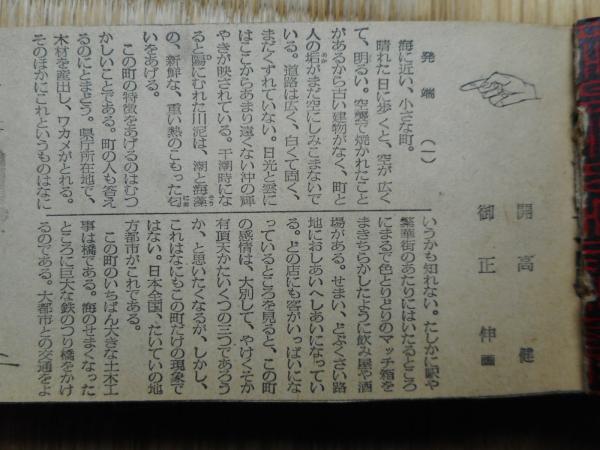 開高 健
御正 伸 画
発端 (一)
海に近い、小さな町。
晴れた日に歩くと、空が広く
て、明るい。空襲で焼かれたこと
があるから古い建物がなく、町と
人の垢がまだ空にしみこまないで
いる。道路は広く、白くて固く、
まだくずれていない。日光と雲に
はここからあまり遠くない沖の輝
やきが映されている。干潮時にな
ると陽にむれた川泥は、潮と海藻
の、新鮮な、重い熱のこもった匂
いをあげる。
この町の特徴をあげるのはむつ
かしいことである。町の人も答え
るのにとまどう。県庁所在地で、
木材を産出し、ワカメがとれる。
そのほかにこれというものはなに
いうかも知れない。たしかに駅や
繁華街のあたりにはいたるところ
にまるで色とりどりのマッチ箱を
まきちらかしたように飲み屋や酒
場がある。せまい、どぶくさい路
地におしあいへしあいになってい
る。どの店にも客がいっぱいにな
っているところを見ると、この町
の感情は、大別して、やけくそか
有頂天かたいくつの三つであろう
か、と思いたくなるが、しかし、
これはなにもこの町だけの現象で
はない。日本全国、たいていの地
方都市がこれである。
この町のいちばん大きな土木工
事は橋である。海のせまくなった
ところに巨大な鉄のつり橋をかけ
るのである。大都市との交通をよ